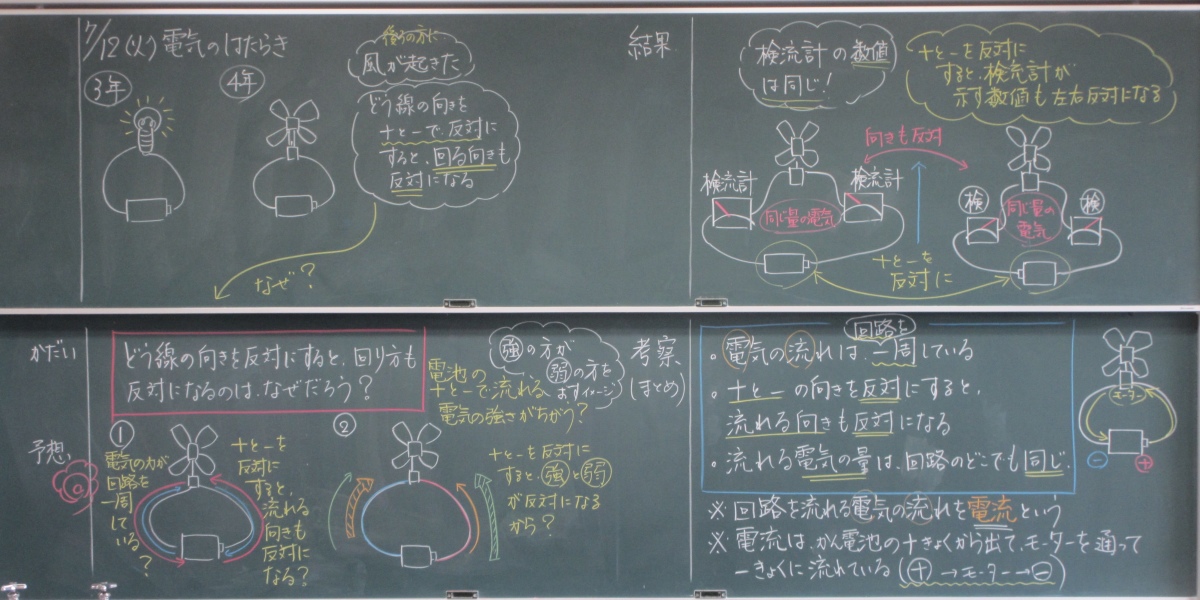 7/12(火) 電気のはたらき
3年
4年
後ろの方に
風が起きた
どう線の向きを
+と-で反対に
すると、回る向きも
反対になる
なぜ?
結果
検流計の数値
は同じ!
+と-を反対に
すると、検流計が
示す数値も左右反対になる
向きも反対
検流計
検流計
同じ量の電気
+と-を
反対に
検
検
同じ量の
電気
かだい
どう線の向きを反対にすると、回り方も
反対になるのは、なぜだろう?
予想
①
電気の方が
回路を
一周
して
いる
?
+と-を
反対に
すると、
流れる
向きも
反対に
なる?
②
強の方が
弱の方を
おすイメージ
電池の
+と-で流れる
電気の強さがちがう?
+と-を反対に
すると、強と弱
が反対になる
から?
考察
(まとめ)
回路を
・電気の流れは、一周している
・+と-の向きを反対にすると、
流れる向きも反対になる
・流れる電気の量は、回路のどこでも同じ.
モーター
-
+
※回路を流れる電気の流れを電流という
※電流は、かん電池の+きょくから出て、モーターを通って
-きょくに流れている(+→モーター→-)